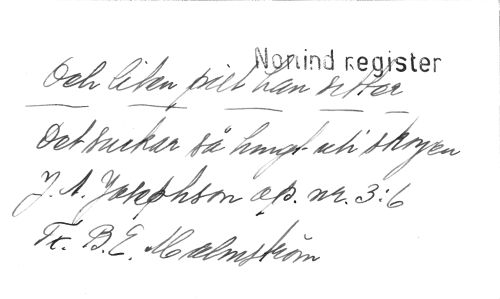 Norlind register
Och liten pilt han sitter
Det suckar så tungt uti skogen
J. A. Josephson op. nr. 3:6
Tx. B. E. Malmström